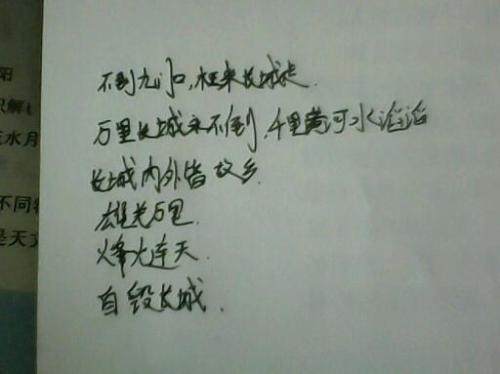 阳
识解
水月
不到九门口,枉来长城走.
万里长城永不倒,千里黄河水滔滔
长城内外皆故乡.
雄关万里.
不同
烽火连天.
是天文
自毁长城.